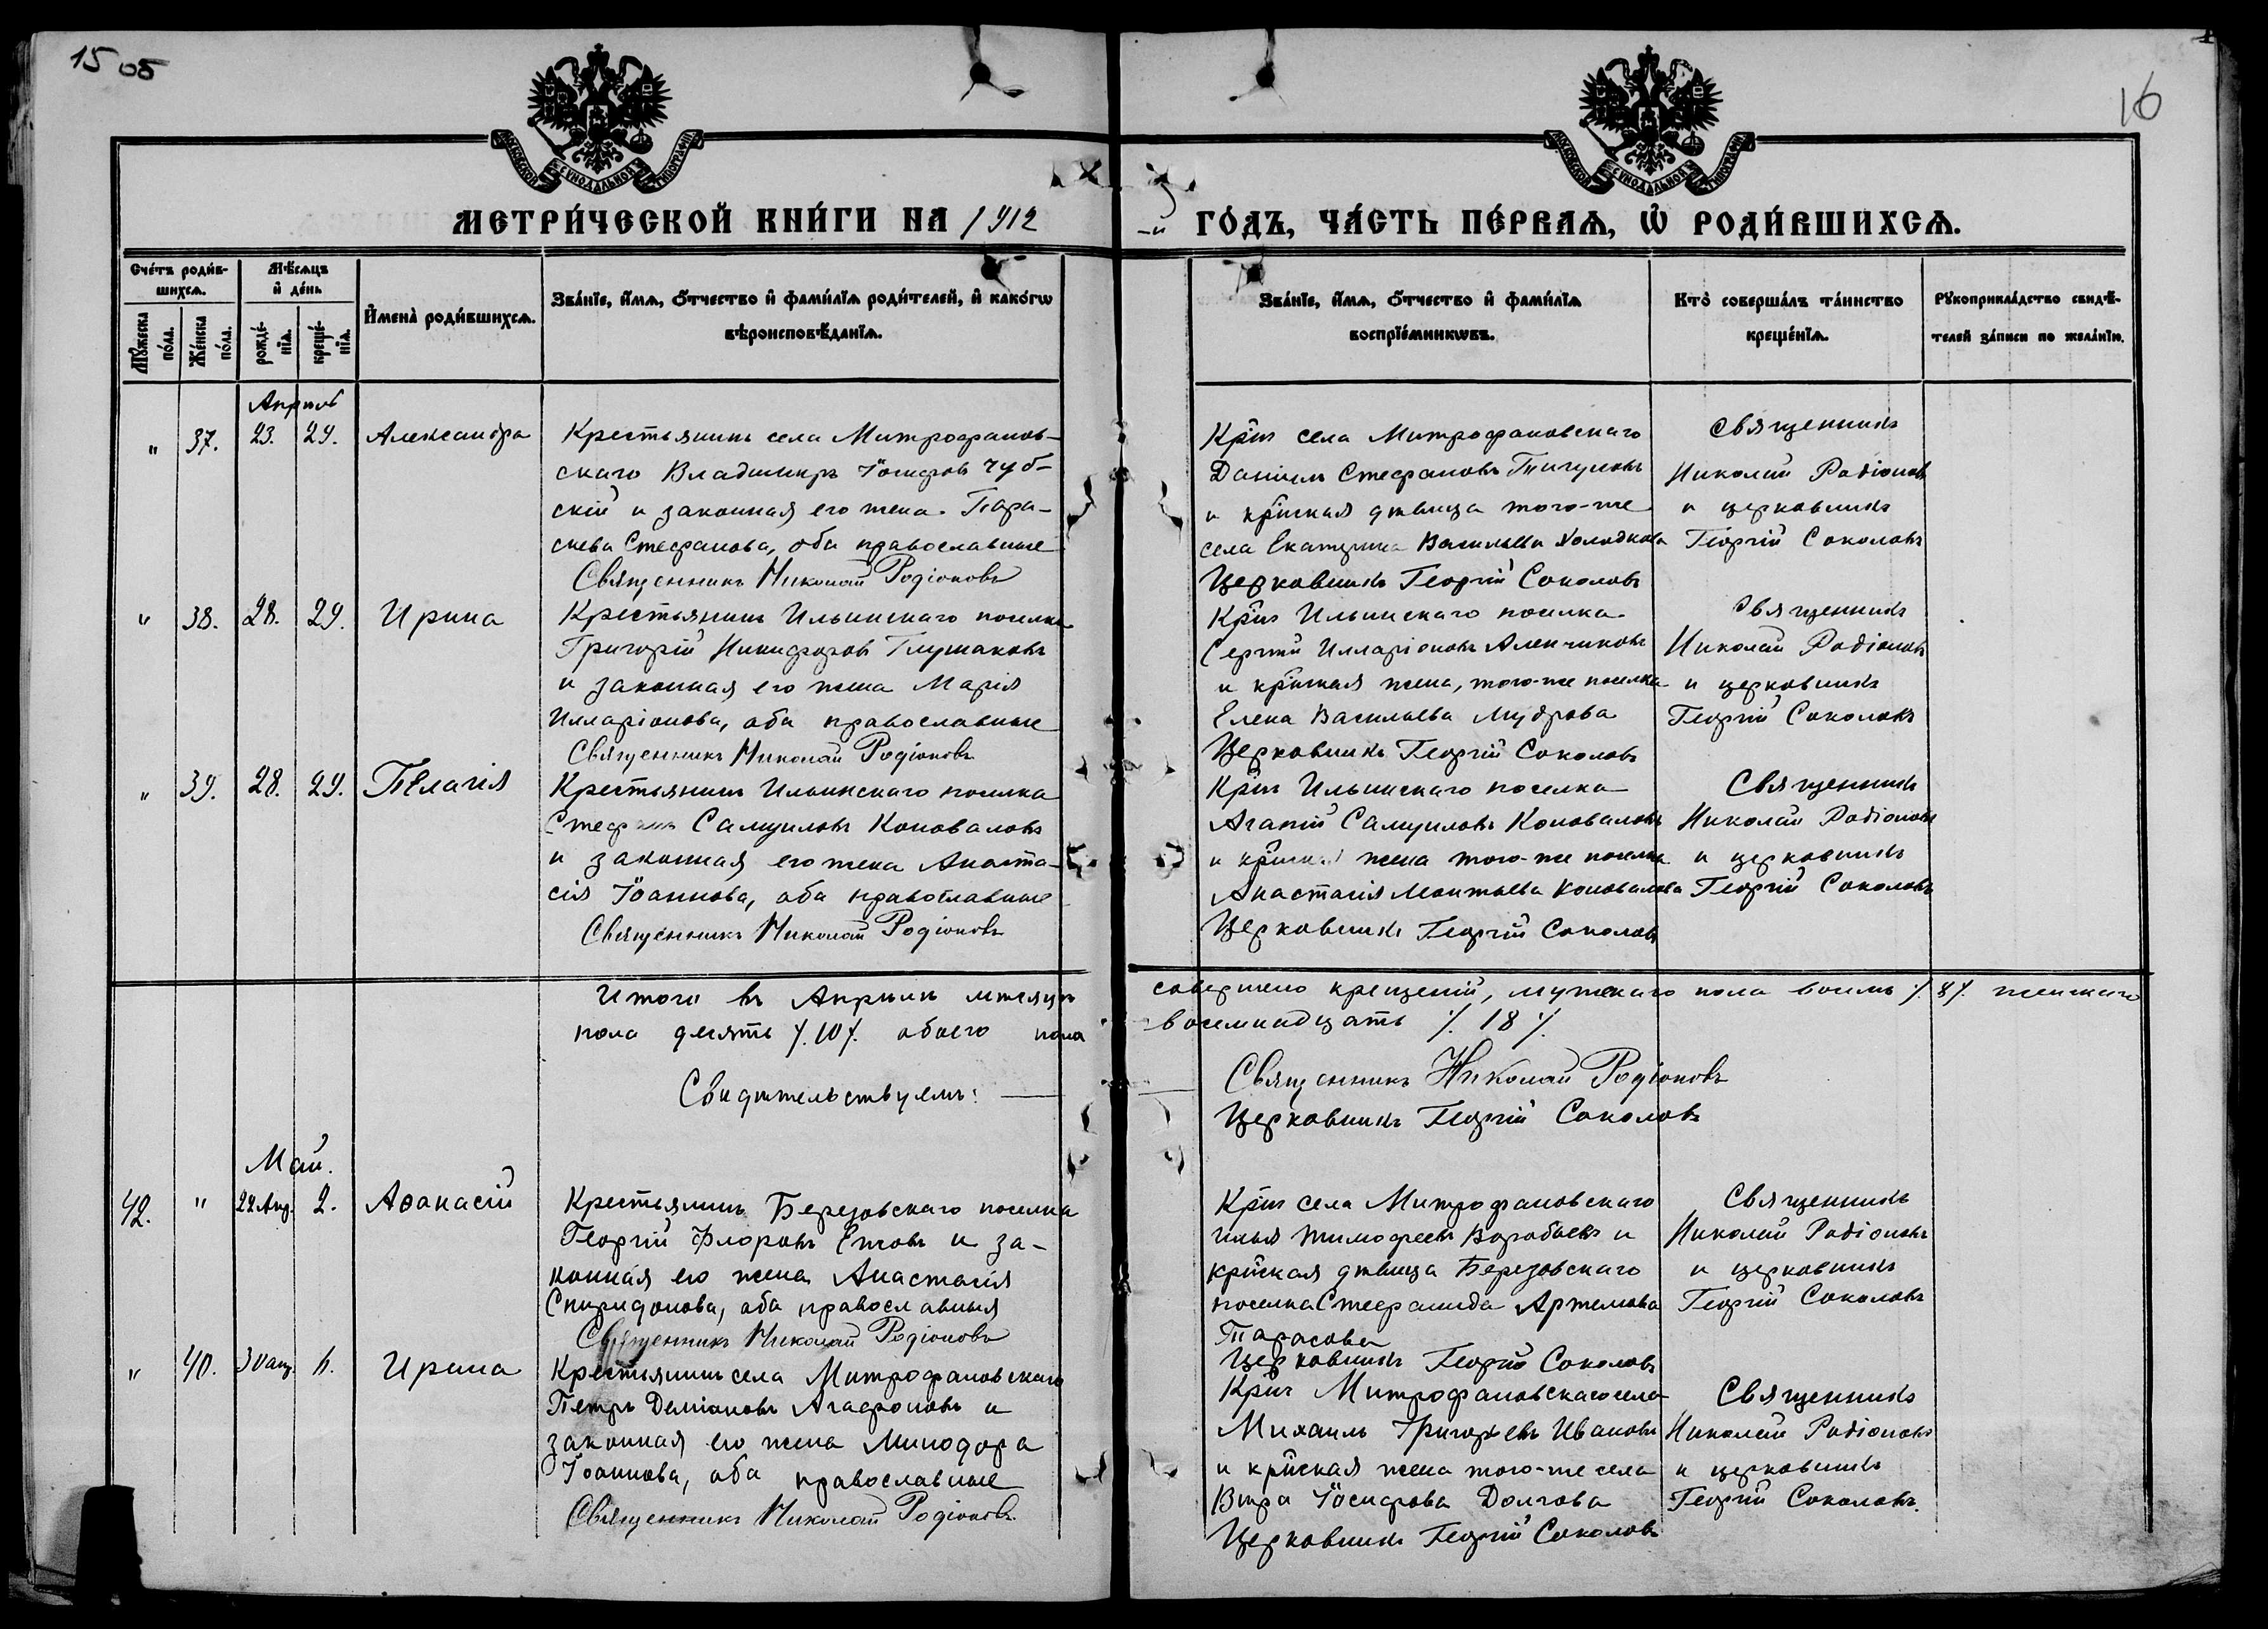 15 об
16
МОСКОВСКОЙ СѴНОДАЛЬНОЙ ТИПОГРАФІИ
МОСКОВСКОЙ СѴНОДАЛЬНОЙ ТИПОГРАФІИ
МЕТРИ́ЧЕСКОЙ КНИ́ГИ НА 1912
-й ГО́ДЪ, ЧА́СТЬ ПЕ́РВАѦ, Ѡ҆ РОДИ́ВШИХСѦ.
Сче́тъ роди́в-
шихсѧ.
Мꙋ́жеска по́ла.
Же́нска по́ла.
Мѣ́сѧцъ
и҆ де́нь
рожде́-
нїѧ.
креще́-
нїѧ.
И҆мена̀ роди́вшихсѧ.
Зва́нїе, и҆́мѧ, ѻ҆́тчество и҆ фами́лїѧ роди́телей, и҆ како́гѡ
вѣроисповѣ́данїѧ.
Зва́нїе, и҆́мѧ, ѻ҆́тчество и҆ фами́лїѧ
воспрїе́мникѡвъ.
Кто̀ соверша́лъ та́инство
креще́нїѧ.
Рꙋкоприкла́дство свидѣ́-
телей за́писи по жела́нїю.
Апрѣль
" 37. 23. 29. Александра
Крестьянинъ села Митрофанов-
скаго Владимиръ Іосифовъ Чуб-
скій и законная его жена Пара-
скева Стефанова, оба православные
Священникъ Николай Родіоновъ
Кр̃нъ села Митрофановскаго
Даніилъ Стефановъ Тигуновъ
и кр̃нская дѣвица того-же
села Екатерина Васильева Холодкова
Церковникъ Георгій Соколовъ
Священникъ
Николай Родіоновъ
и церковникъ
Георгій Соколовъ
" 38. 28. 29. Ирина
Крестьянинъ Ильинскаго поселка
Григорій Никифоровъ Глушаковъ
и законная его жена Марія
Илларіонова, оба православные
Священникъ Николай Родіоновъ
Кр̃нъ Ильинскаго поселка
Сергѣй Илларіоновъ Аленчиковъ
и кр̃нская жена, того-же поселка
Елена Васильева Мудрова
Церковникъ Георгій Соколовъ
Священникъ
Николай Родіоновъ
и церковникъ
Георгій Соколовъ
" 39. 28. 29. Пелагія
Крестьянинъ Ильинскаго поселка
Стефанъ Самуиловъ Коноваловъ
и законная его жена Анаста-
сія Іоаннова, оба православные
Священникъ Николай Родіоновъ
Кр̃нъ Ильинскаго поселка
Агапій Самуиловъ Коноваловъ
и кр̃нская жена того-же поселка
Анастасія Леонтьева Коновалова
Церковникъ Георгій Соколовъ
Священникъ
Николай Родіоновъ
и церковникъ
Георгій Соколовъ
Итого въ Апрѣлѣ мѣсяцѣ совершено крещеній, мужескаго пола восемь /. 8 /. женскаго
пола десять /. 10 /. обоего пола восемнадцать /. 18 /.
Свидѣтельствуемъ:
Священникъ Николай Родіоновъ
Церковникъ Георгій Соколовъ
Май.
42. " 22 Апр. 2. Аѳанасій
Крестьянинъ Березовскаго поселка
Георгій Флоровъ Ежовъ и за-
конная его жена Анастасія
Спиридонова, оба православныя
Священникъ Николай Родіоновъ
Кр̃нъ села Митрофановскаго
Илья Тимофеевъ Воробьевъ и
кр̃нская дѣвица Березовскаго
поселка Стефанида Артемова
Тарасова
Церковникъ Георгій Соколовъ
Священникъ
Николай Родіоновъ
и церковникъ
Георгій Соколовъ
" 40. 30 апр. 6. Ирина
Крестьянинъ села Митрофановскаго
Петръ Даміановъ Агафоновъ и
законная его жена Минодора
Іоаннова, оба православные
Священникъ Николай Родіоновъ
Кр̃нъ Митрофановскаго села
Михаилъ Григорьевъ Ивановъ
и кр̃нская жена того-же села
Вѣра Іосифова Долгова
Церковникъ Георгій Соколовъ
Священникъ
Николай Родіоновъ
и церковникъ
Георгій Соколовъ.